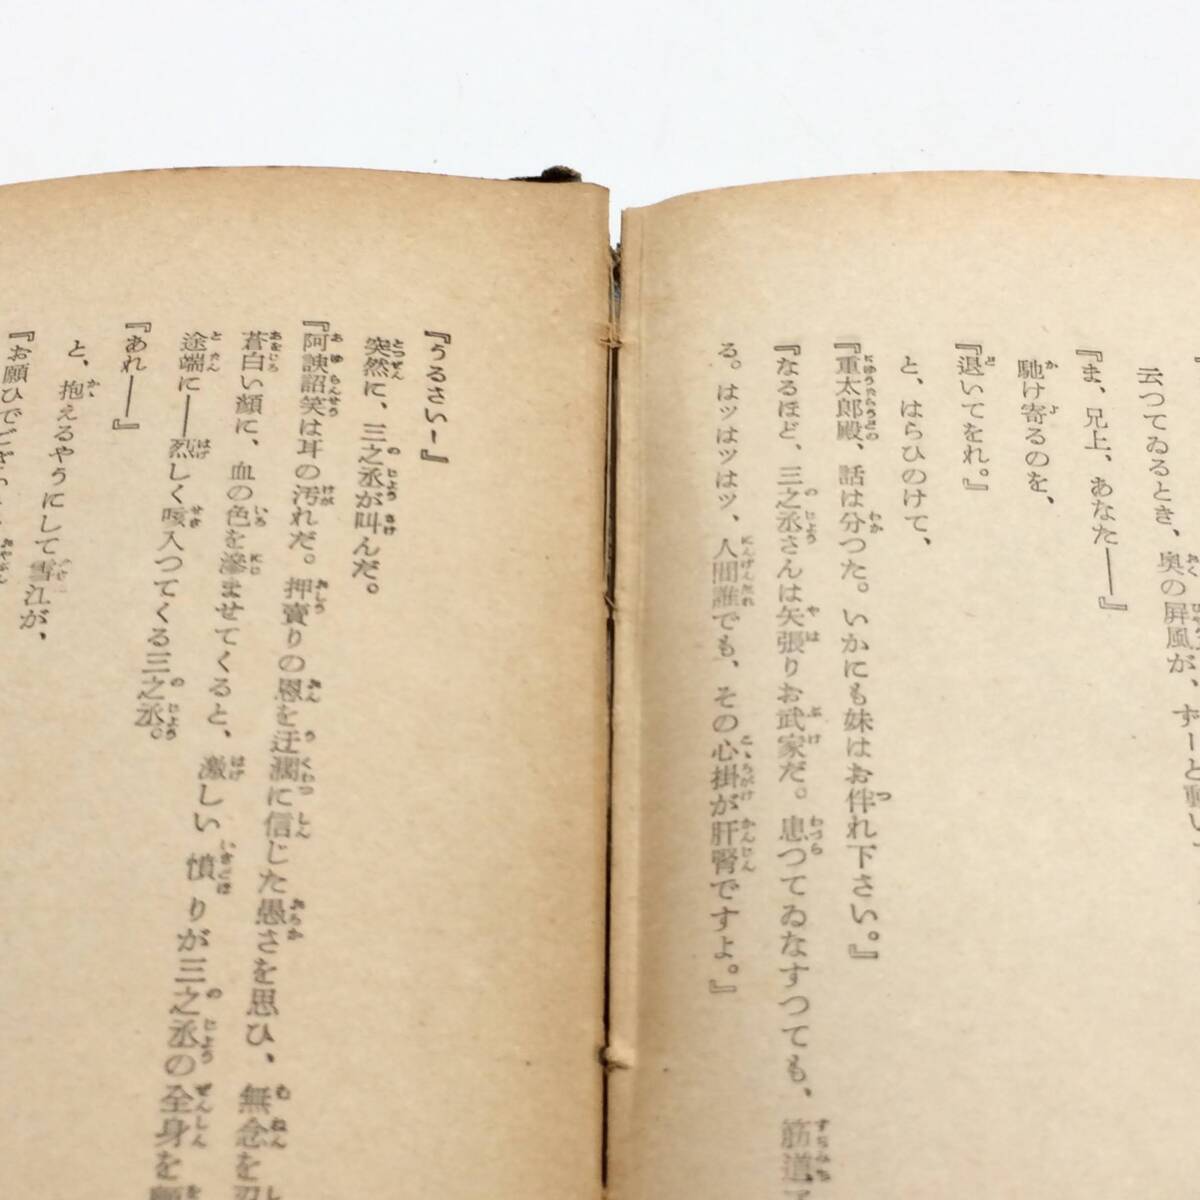 『
云つてゐるとき、奥の屏風が、すーと動いて
『ま、兄上、あなた――』
馳け寄るのを、
『退いてをれ。』
と、はらひのけて、
『重太郎殿、話は分つた。いかにも妹はお伴れ下さい。』
『なるほど、三之丞さんは矢張りお武家だ。患つてゐなすつても、筋道
る。はッはッはッ、人間誰でも、その心掛が肝腎ですよ。』
『うるさい！』
突然に、三之丞が叫んだ。
『阿諛諂笑は耳の汚れだ。押賣りの恩を迂濶に信じた愚さを思ひ、無念を忍
蒼白い顔に、血の色を滲ませてくると、激しい憤りが三之丞の全身を顫
途端に――烈しく咳入つてくる三之丞。
『あれ――』
と、抱えるやうにして雪江が、
『お願ひでござい